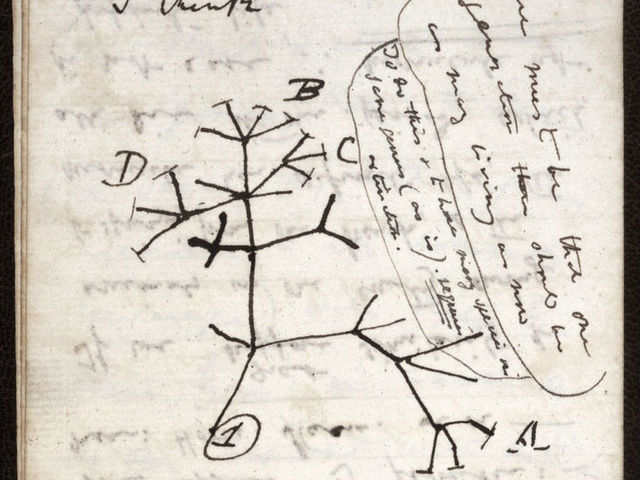 I think
must be that one
generation then should be
as many living as now
To do this & to have many species in
same genus (as is). requires
extinction.
B
C
D
A
1